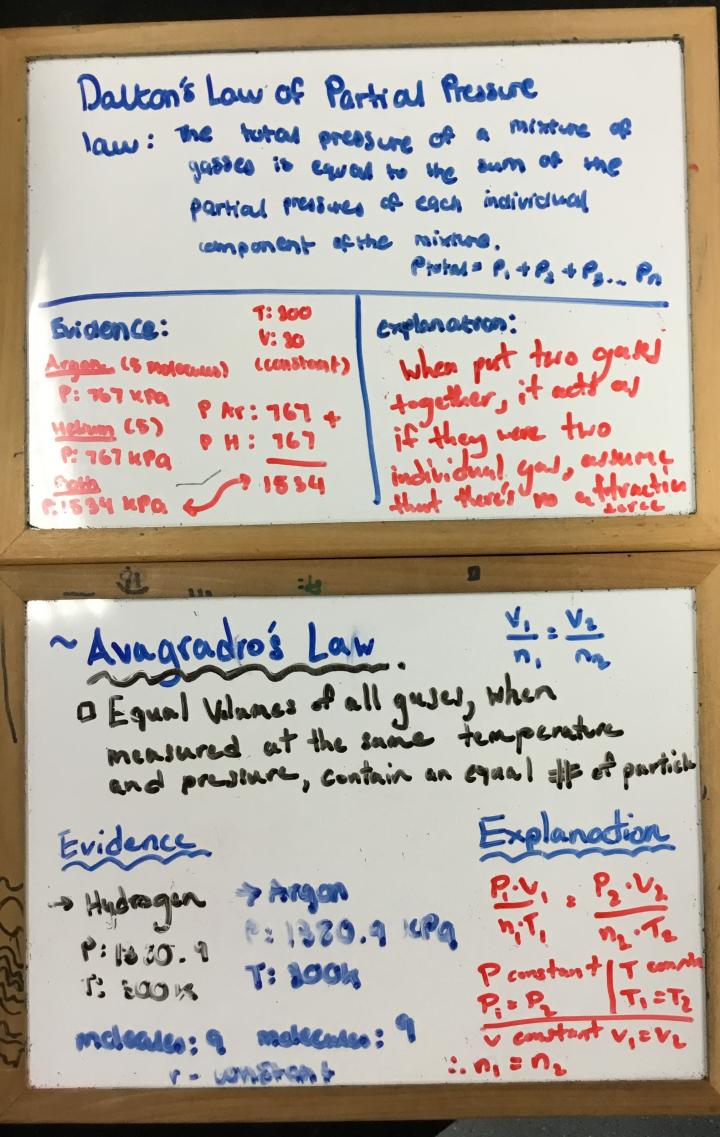 Dalton's Law of Partial Pressure
law: The total pressure of a mixture of
gasses is equal to the sum of the
partial pressures of each individual
component of the mixture.
Ptotal = P1 + P2 + P3... Pn
Evidence:
T: 300
V: 30
(constant)
Argon (5 molecules)
P: 767 kPa
Helium (5)
P: 767 kPa
Both
P: 1534 kPa
P Ar: 767 +
P H: 767
1534
Explanation:
When put two gases
together, it acts as
if they were two
individual gas, assume
that there's no attraction
force
~ Avagradro's Law.
V1/n1 = V2/n2
□ Equal Volumes of all gases, when
measured at the same temperature
and pressure, contain an equal # of particle
Evidence
→ Hydrogen
P: 1330.9
T: 300K
molecules: 9
→ Argon
P: 1320.9 kPa
T: 300k
molecules: 9
constant
Explanation
P1·V1/n1·T1 = P2·V2/n2·T2
P constant | T
P1 = P2 | T1 = T2
V constant V1 = V2
∴ n1 = n2